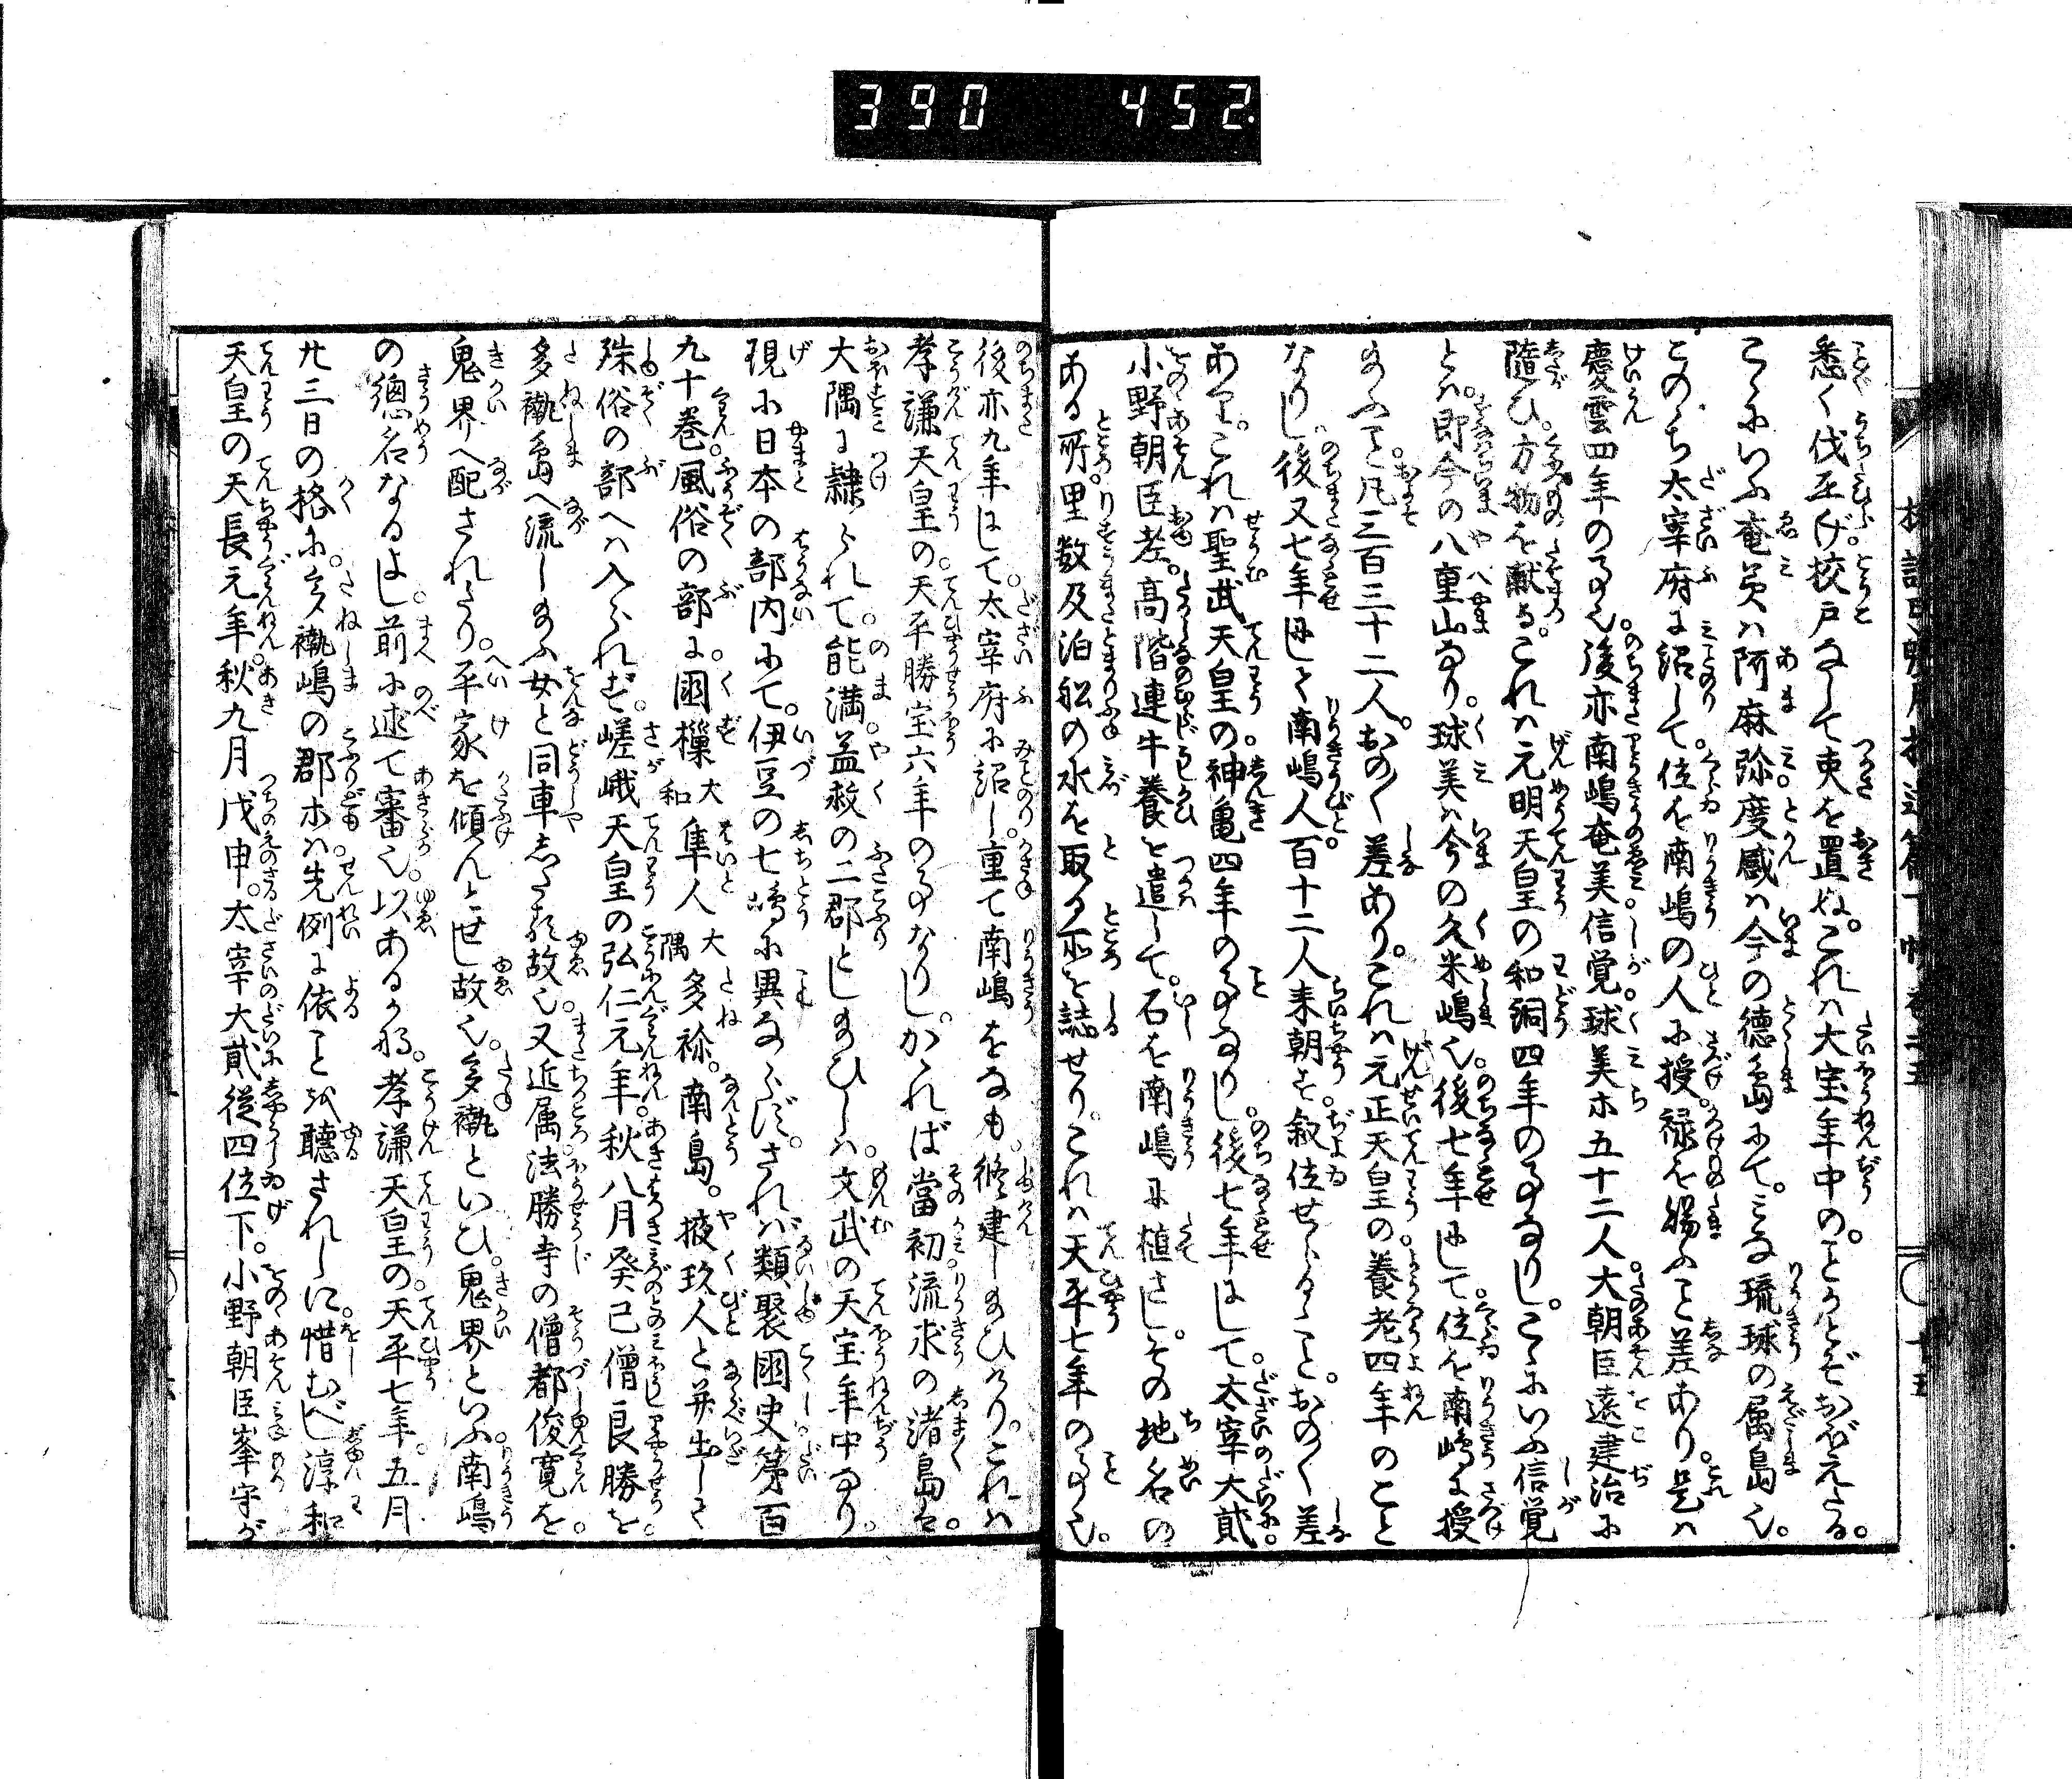 390 452.
悉く伐平げ挍戸なして吏を置ぬ。これハ大宝年中の。ことゝぞおぼえたる。
こゝにいふ奄美ハ阿麻弥度感ハ今の徳島にて。みな琉球の属島也。
このゝち太宰府に詔して。位を南嶋の人に授。禄を賜ふこと差あり。是ハ
慶雲四年の事也。後亦南嶋奄美信覚球美ホ五十二人。大朝臣遠建治に
随ひ。方物を献る。これハ元明天皇の和銅四年の事なりし。こゝにいふ信覚
とハ。即今の八重山なり。球美ハ今の久米嶋也。後七年にして。位を南嶋に授
のふこと。凡二百三十二人。おの〱差あり。これハ元正天皇の養老四年のこと
なりし。後又七年にして南嶋人。百十二人来朝す。叙位せらるゝこと。おの〱差
あり。これハ聖武天皇の神亀四年の事なりし。後七年にして。太宰大貳。
小野朝臣老。高階連牛養を遣して。石を南嶋に植さし。その地名の
ある所。里数及泊舩の水を取る所を誌せり。これハ天平七年の事也。
後亦九年にして。太宰府に詔し。重て南嶋をなも。修建しのひけり。これハ
孝謙天皇の。天平勝宝六年の事なりし。かゝれば當初。流求の渚島を。
大隅に隷られて。能満。益救の二郡としのひしハ。文武の天宝年中なり。
現に日本の部内にて。伊豆の七嶋に異ならず。されバ類聚國史第百
九十巻。風俗の部に。國樔大和隼人大隅多祢。南島。掖玖人と并出して
殊俗の部へハ入られず。嵯峨天皇の弘仁元年。秋八月癸巳僧良勝を。
多褹島へ流しのふ女と同車したる故也。又近属法勝寺の僧都俊寛を。
鬼界へ配されたり。平家を傾んとせし故也。多褹といひ。鬼界といふ。南嶋
の總名なるよし。前に述て審也。以あるかな。孝謙天皇の。天平七年。五月
廿三日の格に。多褹嶋の郡ホハ先例に依ことを聴されしに。惜むべし淳和
天皇の天長元年。秋九月戊申。太宰大貳従四位下。小野朝臣峯守が